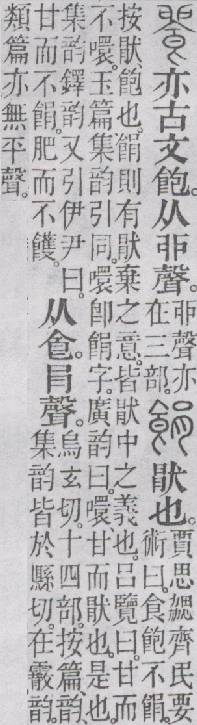 亦古文飽。从丣聲。
丣聲亦
在三部。
猒也。
賈思勰齊民要
術曰。食飽不䬼。
按猒飽也。䬼則有猒棄之意。皆猒中之義也。呂覽曰。甘而
不噮。玉篇集韵引同。噮卽䬼字。廣韵曰。噮甘而猒也。是也。
集韵鐸韵又引伊尹曰。
甘而不䬼。肥而不𩟓。
从𠊊肙聲。
烏玄切。十四部。按篇韵
集韵皆於縣切。在霰韵。
類篇亦無平聲。